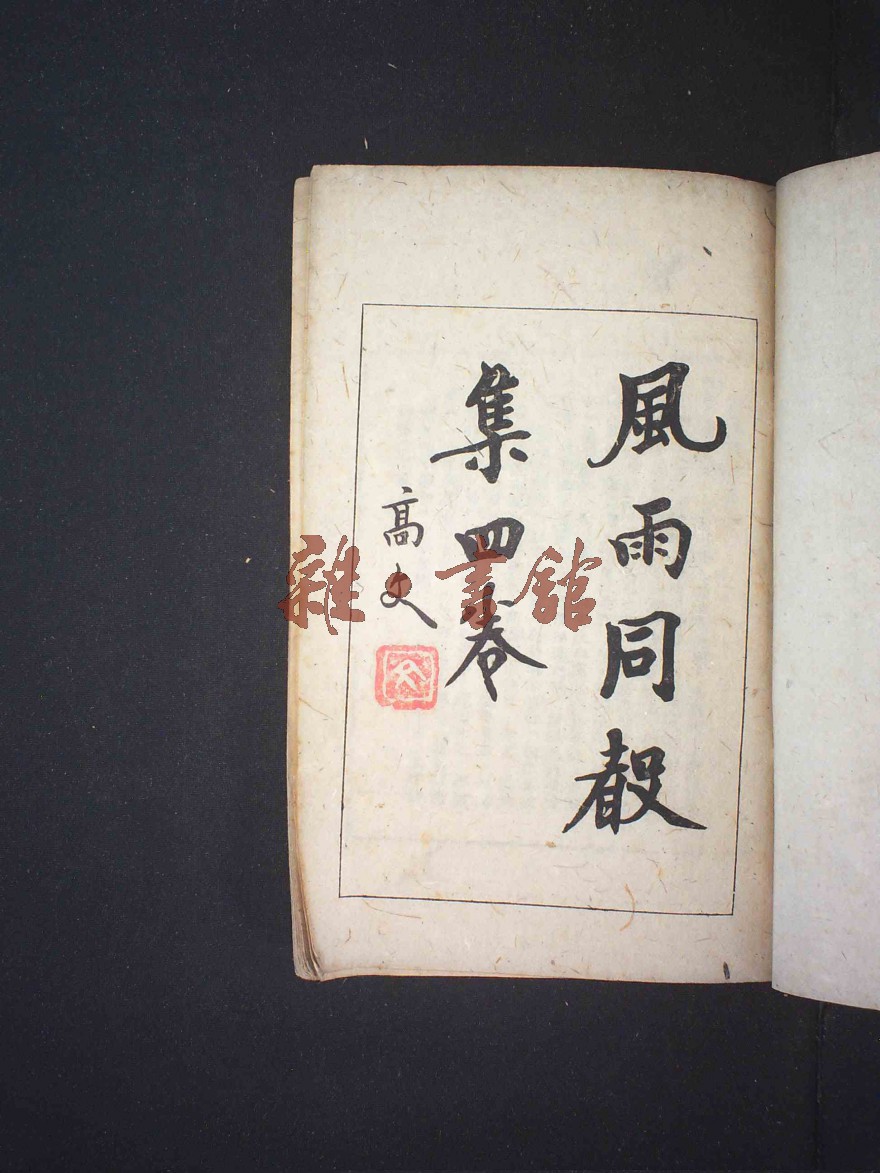 風雨同聲
集四卷
高文
文
雜·書館